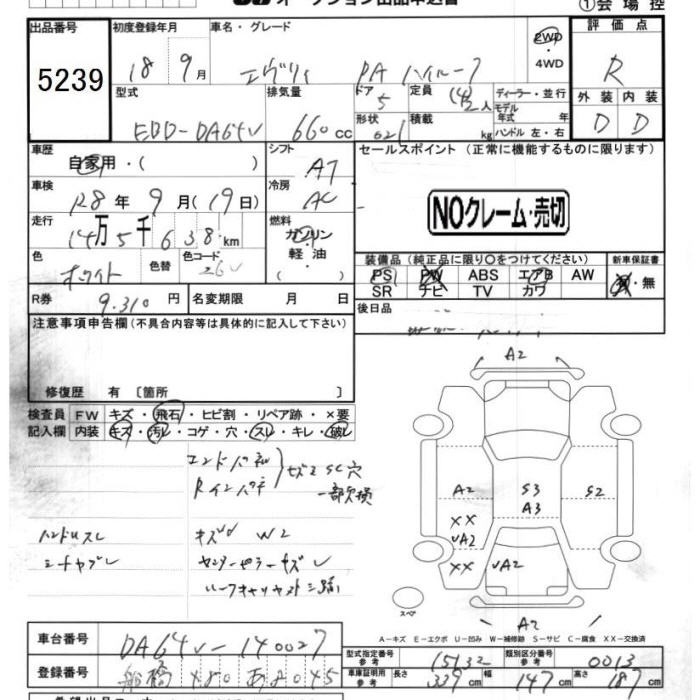 オークション出品申込書
①会場控
出品番号
5239
初度登録年月
18年9月
車名・グレード
エヴリィ PA ハイルーフ
2WD
・
4WD
評価点
R
型式
EBD-DA64V
排気量
660cc
ドア
5
形状
021
定員
(4)2人
積載
kg
ディーラー・並行
モデル年式 年
ハンドル 左・右
外装 内装
D D
車歴
自家用・( )
シフト
AT
車検
R8年9月(19日)
冷房
AC
走行
14万5千638km
燃料
ガソリン
軽・油
( )
色
ホワイト
色替
色コード
26U
R券
9.310円
名変期限 月 日
セールスポイント (正常に機能するものに限ります)
NOクレーム・売切
装備品(純正品に限り○をつけてください)
新車保証書
PS PW ABS エアB AW
SR ナビ TV カワ
有・無
後日品
注意事項申告欄(不具合内容等は具体的に記入して下さい)
修復歴 有 〔箇所 〕
検査員
記入欄
FW キズ・飛石・ヒビ割・リペア跡・×要
内装 キズ・汚レ・コゲ・穴・スレ・キレ・破レ
エンドパネル
Rインパネ
SC穴
一部欠損
ハンドルスレ
シートヤブレ
キズU W2
A2
A2
XX
UA2
XX
S3
A3
S2
UA2
A2
スペア
A-キズ E-エクボ U-凹み W-補修跡 S-サビ C-腐食 XX-交換済
車台番号
DA64V-140027
登録番号
船橋 480 あ 8045
型式指定番号
参考
15132
類別区分番号
参考
0013
車庫証明用
参考
長さ
339cm
幅
147cm
高さ
187cm